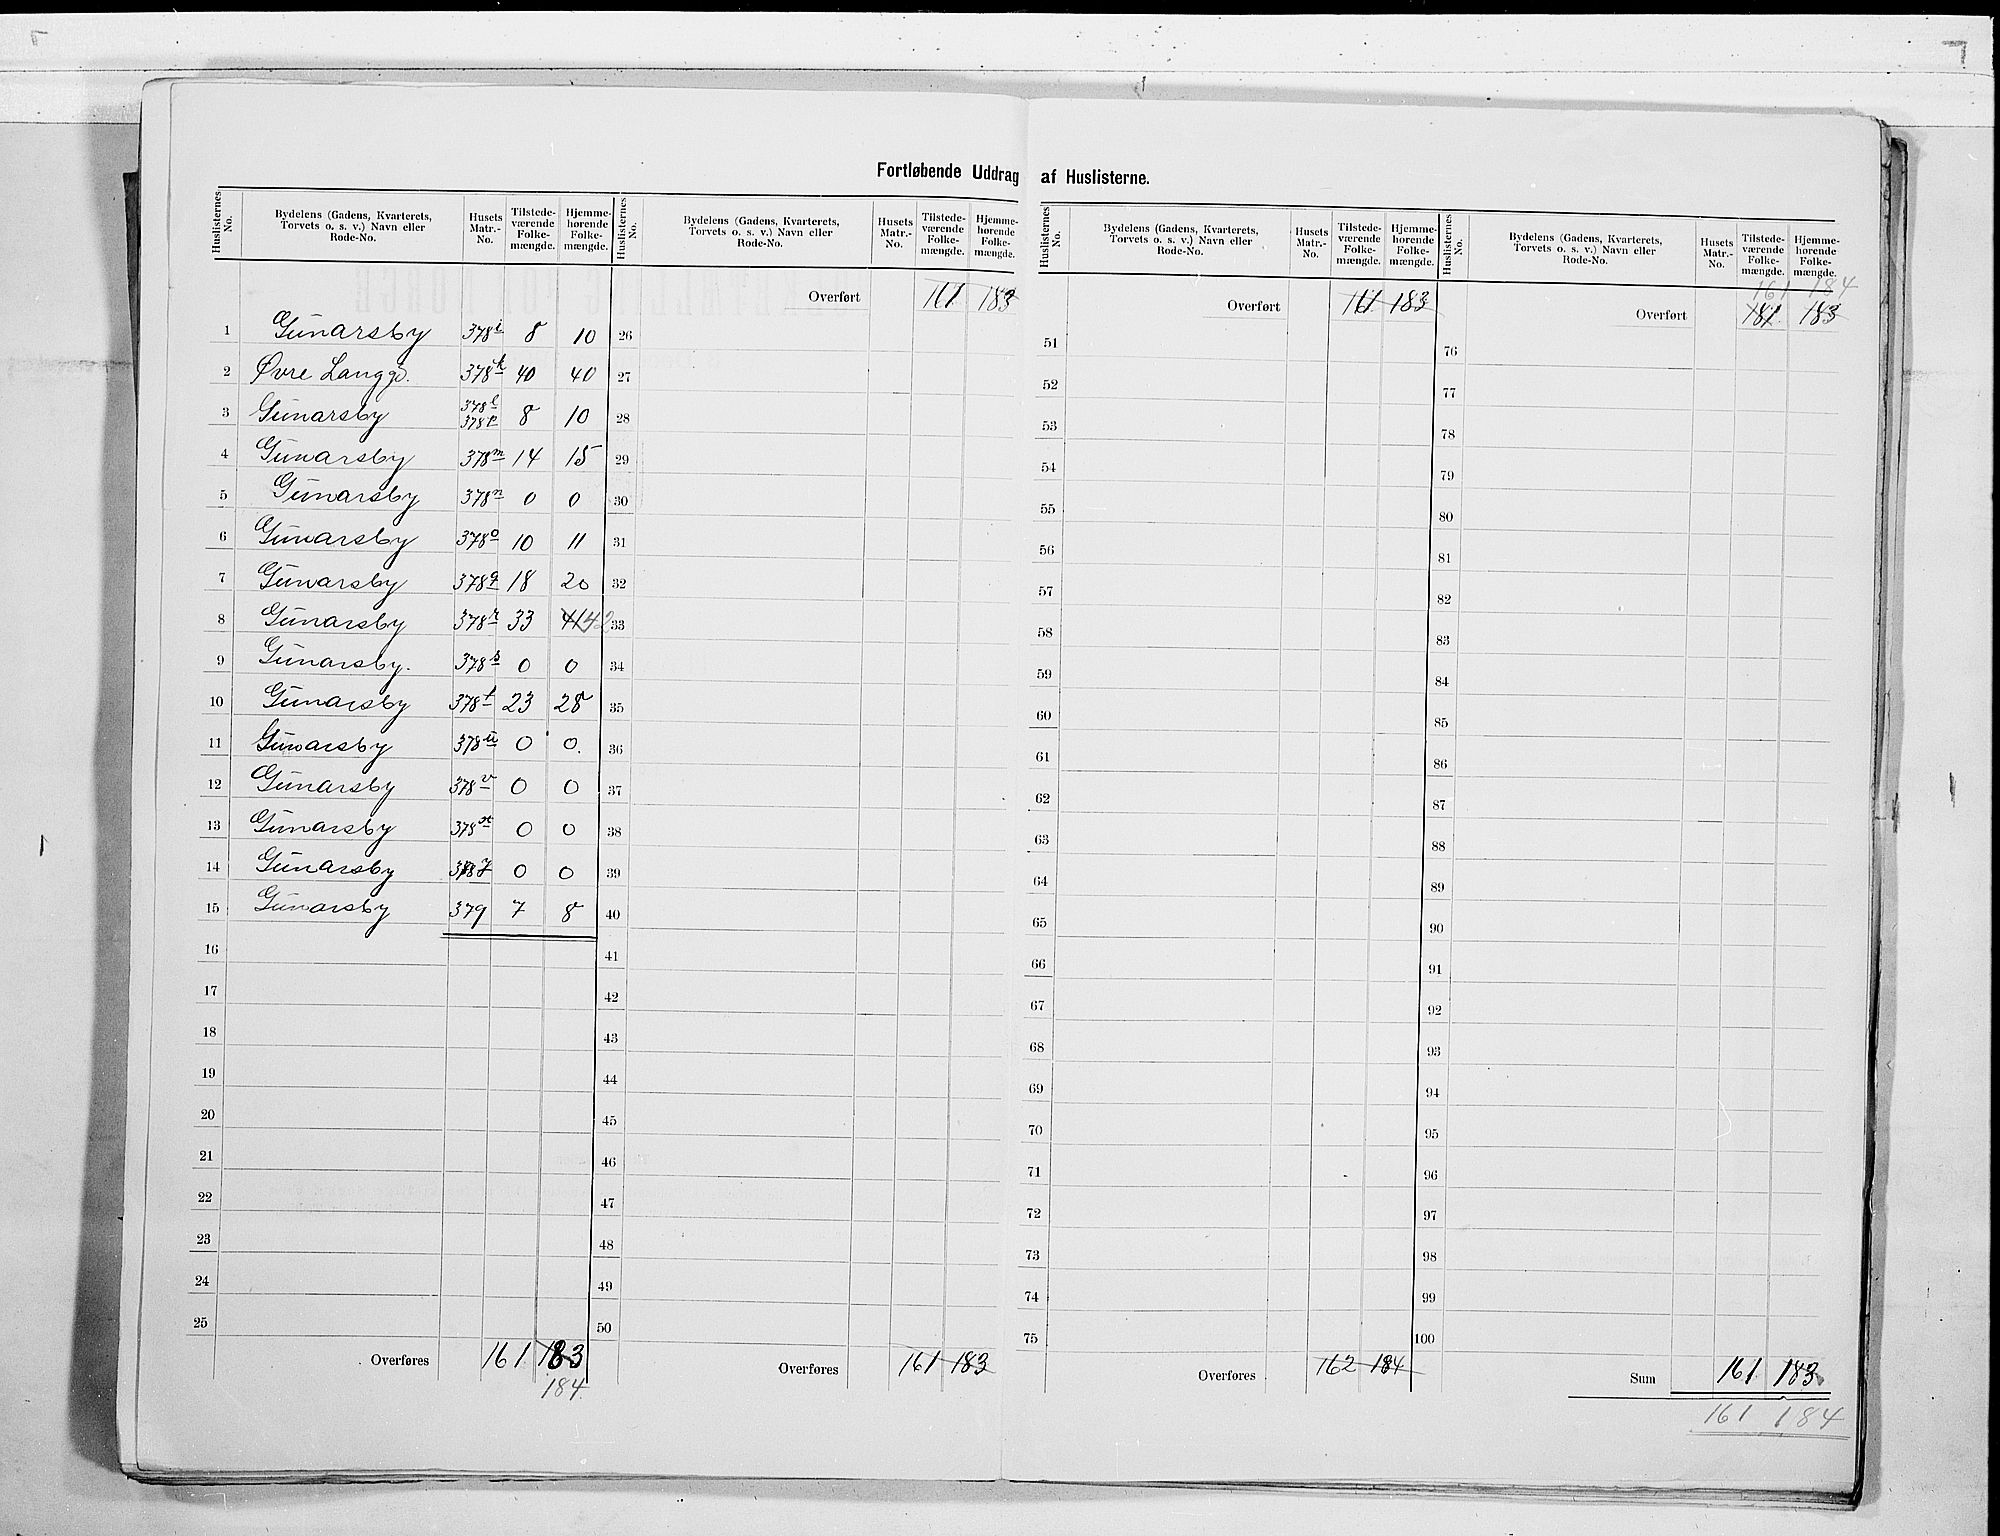 Fortløbende Uddrag af Huslisterne.
Huslisternes No. Bydelens (Gadens, Kvarterets, Torvets o. s. v.) Navn eller Rode-No. Husets Matr.-No. Tilstede-værende Folke-mængde. Hjemme-hørende Folke-mængde.
1 Gunarsby 378i 8 10
2 Øvre Langgd. 378k 40 40
3 Gunarsby 378l 378p 8 10
4 Gunarsby 378m 14 15
5 Gunarsby 378n 0 0
6 Gunarsby 378o 10 11
7 Gunarsby 378q 18 20
8 Gunarsby 378r 33 41 42
9 Gunarsby. 378s 0 0
10 Gunarsby 378t 23 28
11 Gunarsby 378u 0 0.
12 Gunarsby 378v 0 0
13 Gunarsby 378x 0 0
14 Gunarsby 378y 0 0
15 Gunarsby 379 7 8
16
17
18
19
20
21
22
23
24
25
Overføres 161 183
184
Huslisternes No. Bydelens (Gadens, Kvarterets, Torvets o. s. v.) Navn eller Rode-No. Husets Matr.-No. Tilstede-værende Folke-mængde. Hjemme-hørende Folke-mængde.
Overført 161 183
26
27
28
29
30
31
32
33
34
35
36
37
38
39
40
41
42
43
44
45
46
47
48
49
50
Overføres 161 183
Huslisternes No. Bydelens (Gadens, Kvarterets, Torvets o. s. v.) Navn eller Rode-No. Husets Matr.-No. Tilstede-værende Folke-mængde. Hjemme-hørende Folke-mængde.
Overført 161 183
51
52
53
54
55
56
57
58
59
60
61
62
63
64
65
66
67
68
69
70
71
72
73
74
75
Overføres 162 184
Huslisternes No. Bydelens (Gadens, Kvarterets, Torvets o. s. v.) Navn eller Rode-No. Husets Matr.-No. Tilstede-værende Folke-mængde. Hjemme-hørende Folke-mængde.
161 184
Overført 181 183
76
77
78
79
80
81
82
83
84
85
86
87
88
89
90
91
92
93
94
95
96
97
98
99
100
Sum 161 183
161 184